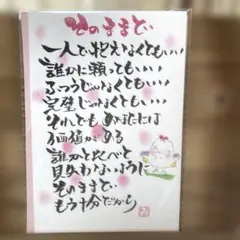 そのままで
一人で抱えなくともいい
誰かに頼ってもいい
ふつうじゃなくてもいい
完璧じゃなくともいい
それでもあなたには
価値がある
誰かと比べて
見失わないように
そのままで
もう十分だから